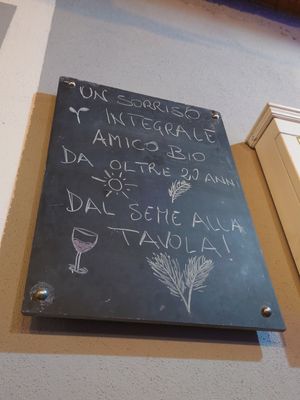 UN SORRISO
INTEGRALE
AMICO BIO
DA OLTRE 20 ANNI
DAL SEME ALLA
TAVOLA!